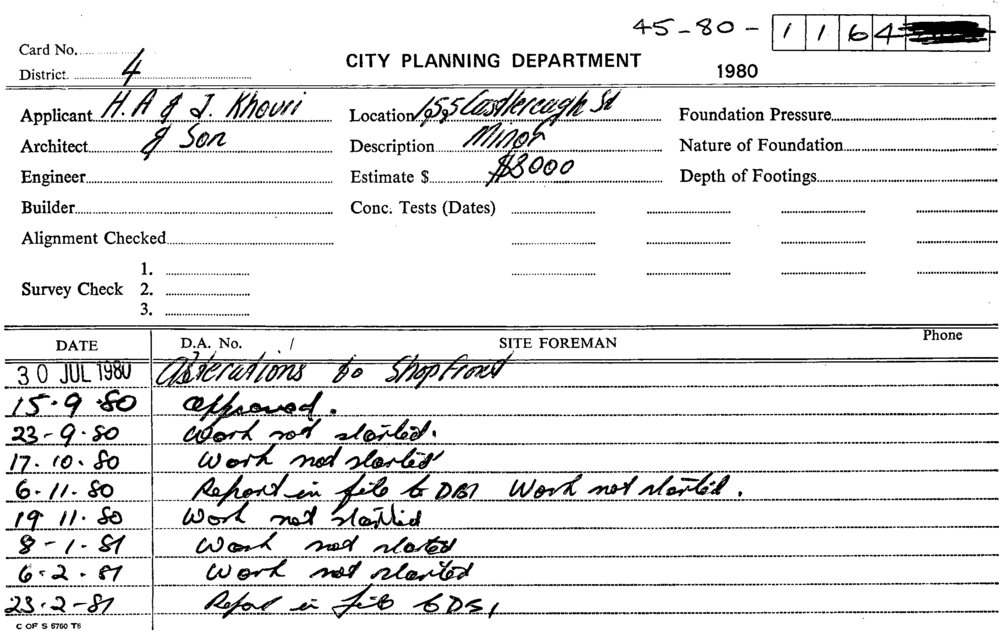 45-80- 1164
Card No.
District. 4
CITY PLANNING DEPARTMENT
1980
Applicant H.A & J. Khouri
Location 155 Castlereagh St
Foundation Pressure
Architect & Son
Description Minor
Nature of Foundation
Engineer
Estimate $ $3000
Depth of Footings
Builder
Conc. Tests (Dates)
Alignment Checked
1.
Survey Check 2.
3.
DATE D.A. No. / SITE FOREMAN Phone
30 JUL 1980 Alterations to Shopfront
15.9.80 approved.
23-9.80 Work not started.
17.10.80 Work not started
6.11.80 Report in file to DBI Work not started.
19 11.80 Work not started
8-1.81 Work not started
6.2.81 Work not started
23.2-81 Report in file to
C OF S 6760 T6